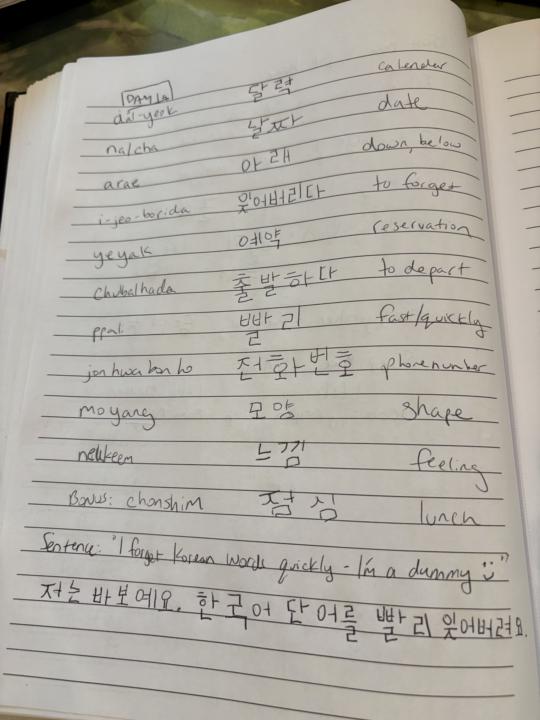 DAY 12
dal-yeok 달력 calendar
nalcha 날짜 date
arae 아래 down, below
i-jeo-borida 잊어버리다 to forget
yeyak 예약 reservation
chulbalhada 출발하다 to depart
ppali 빨리 fast/quickly
jonhwabonho 전화번호 phone number
moyang 모양 shape
neukkeem 느낌 feeling
Bonus: chonshim 점심 lunch
Sentence: "I forget Korean words quickly - I'm a dummy"
저는 바보예요. 한국어 단어를 빨리 잊어버려요.